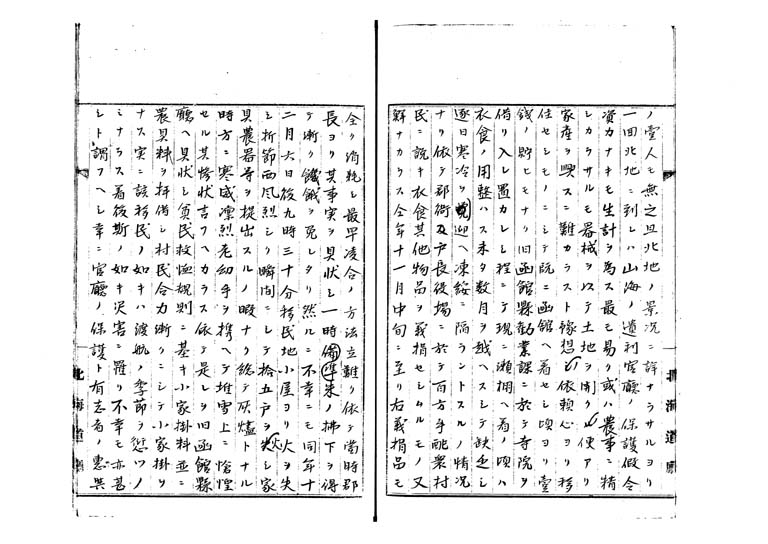 ノ壹人モ無之且北地ノ景況ニ詳ナラサルヨリ
一回北地ニ到レハ山海ノ遺利官廳ノ保護假令
資力ナキモ生計ヲ為ス最モ易ク或ハ農事ニ精
シカラサルモ器械ヲ以テ土地ヲ開クノ便アリ
家産ヲ興スニ難カラスト豫想シ依頼心ヨリ移
住セシモノニシテ既ニ函館ヘ着セシ頃ヨリ壹
錢ノ貯ヒモナク旧函館縣勧業課ニ於テ寺院ヲ
借リ入レ置カレシ程ニテ現ニ瀬棚ヘ着ノ頃ハ
衣食ノ用整ハス未タ数月ヲ越ヘスシテ缺乏シ
逐日寒冷ヲ迎ヘ凍餒ニ陥ラントスルノ情況
ナリ依テ郡衙及戸長役場ニ於テ百方手配衆村
民ニ説キ衣食其他物品ヲ義捐セシムルモノ又
鮮ナカラス全年十一月中旬ニ至リ右義捐品モ
全ク消耗シ最早凌合ノ方法立難ク依テ當時郡
長ヨリ其事実ヲ具状シ一時備準米ノ拂下ヲ得
テ漸ク饑餓ヲ免レタリ然ルニ不幸ニモ同年十
二月六日後九時三十分移民地小屋ヨリ火ヲ失
シ折節西風烈シク瞬間ニシテ拾五戸ヲ失シ家
具農器等ヲ提出スルノ暇ナク総テ灰燼トナル
時方ニ寒威凛烈老幼手ヲ携ヘテ堆雪上ニ愴惶
セル其惨状言フヘカラス依テ是レヲ旧函館縣
廳ヘ具状シ貧民救恤規則ニ基キ小家掛料並ニ
農具料ヲ拝借シ村民合力漸クニシテ小家掛ヲ
ナス実ニ該移民ノ如キハ渡航ノ季節ヲ愆ツノ
ミナラス着後斯ノ如キ災害ニ罹リ不幸モ亦甚
シト謂フヘシ幸ニ官廳ノ保護ト有志者ノ惠与
北海道廳
北海道廳